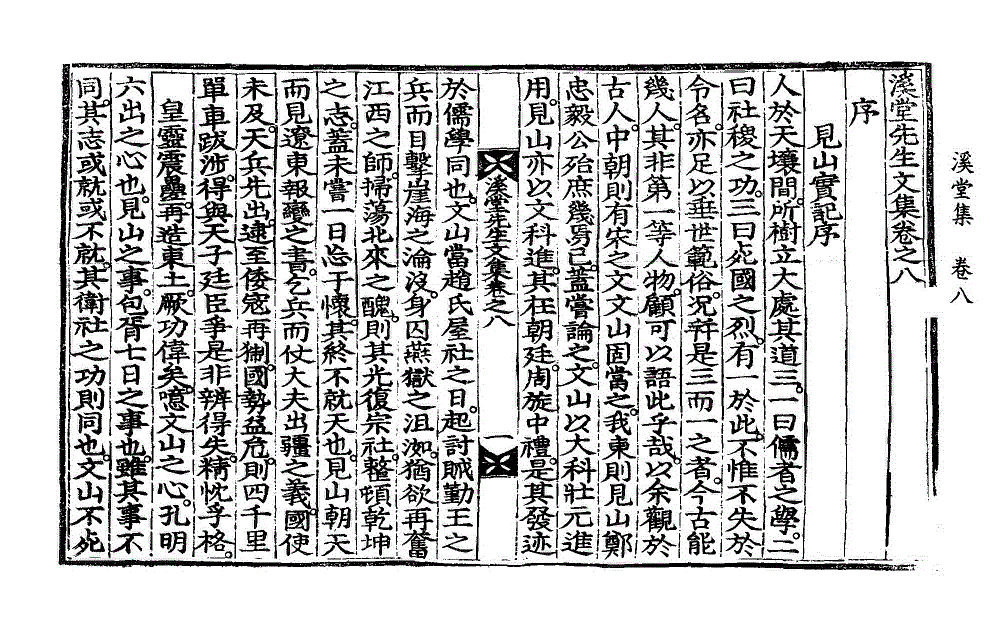 溪堂集　卷八
溪堂先生文集卷之八
序
見山實記序
人於天壤間。所樹立大處其道三。一曰儒者之學。二
曰社稷之功。三曰死國之烈。有一於此。不惟不失於
令名。亦足以垂世範俗。况幷是三而一之者。今古能
幾人。其非第一等人物。顧可以語此乎哉。以余觀於
古人。中朝則有宋之文文山固當之。我東則見山鄭
忠毅公殆庶幾焉已。蓋嘗論之。文山以大科壯元進
用。見山亦以文科進。其在朝廷。周旋中禮。是其發迹
溪堂先生文集卷之八
一
於儒學同也。文山當趙氏屋社之日。起討賊勤王之
兵。而目擊崖海之淪沒。身囚燕獄之沮洳。猶欲再奮
江西之師。掃蕩北來之醜。則其光復宗社。整頓乾坤
之志。蓋未嘗一日忘于懷。其終不就天也。見山朝天
而見遼東報變之書。乞兵而仗大夫出疆之義。國使
未及。天兵先出。逮至倭寇再猘。國勢益危。則四千里
單車跋涉。得與天子廷臣爭是非辨得失。精忱孚格。
皇靈震疊。再造東土。厥功偉矣。噫文山之心。孔明
六出之心也。見山之事。包胥七日之事也。雖其事不
同。其志或就或不就。其衛社之功則同也。文山不死